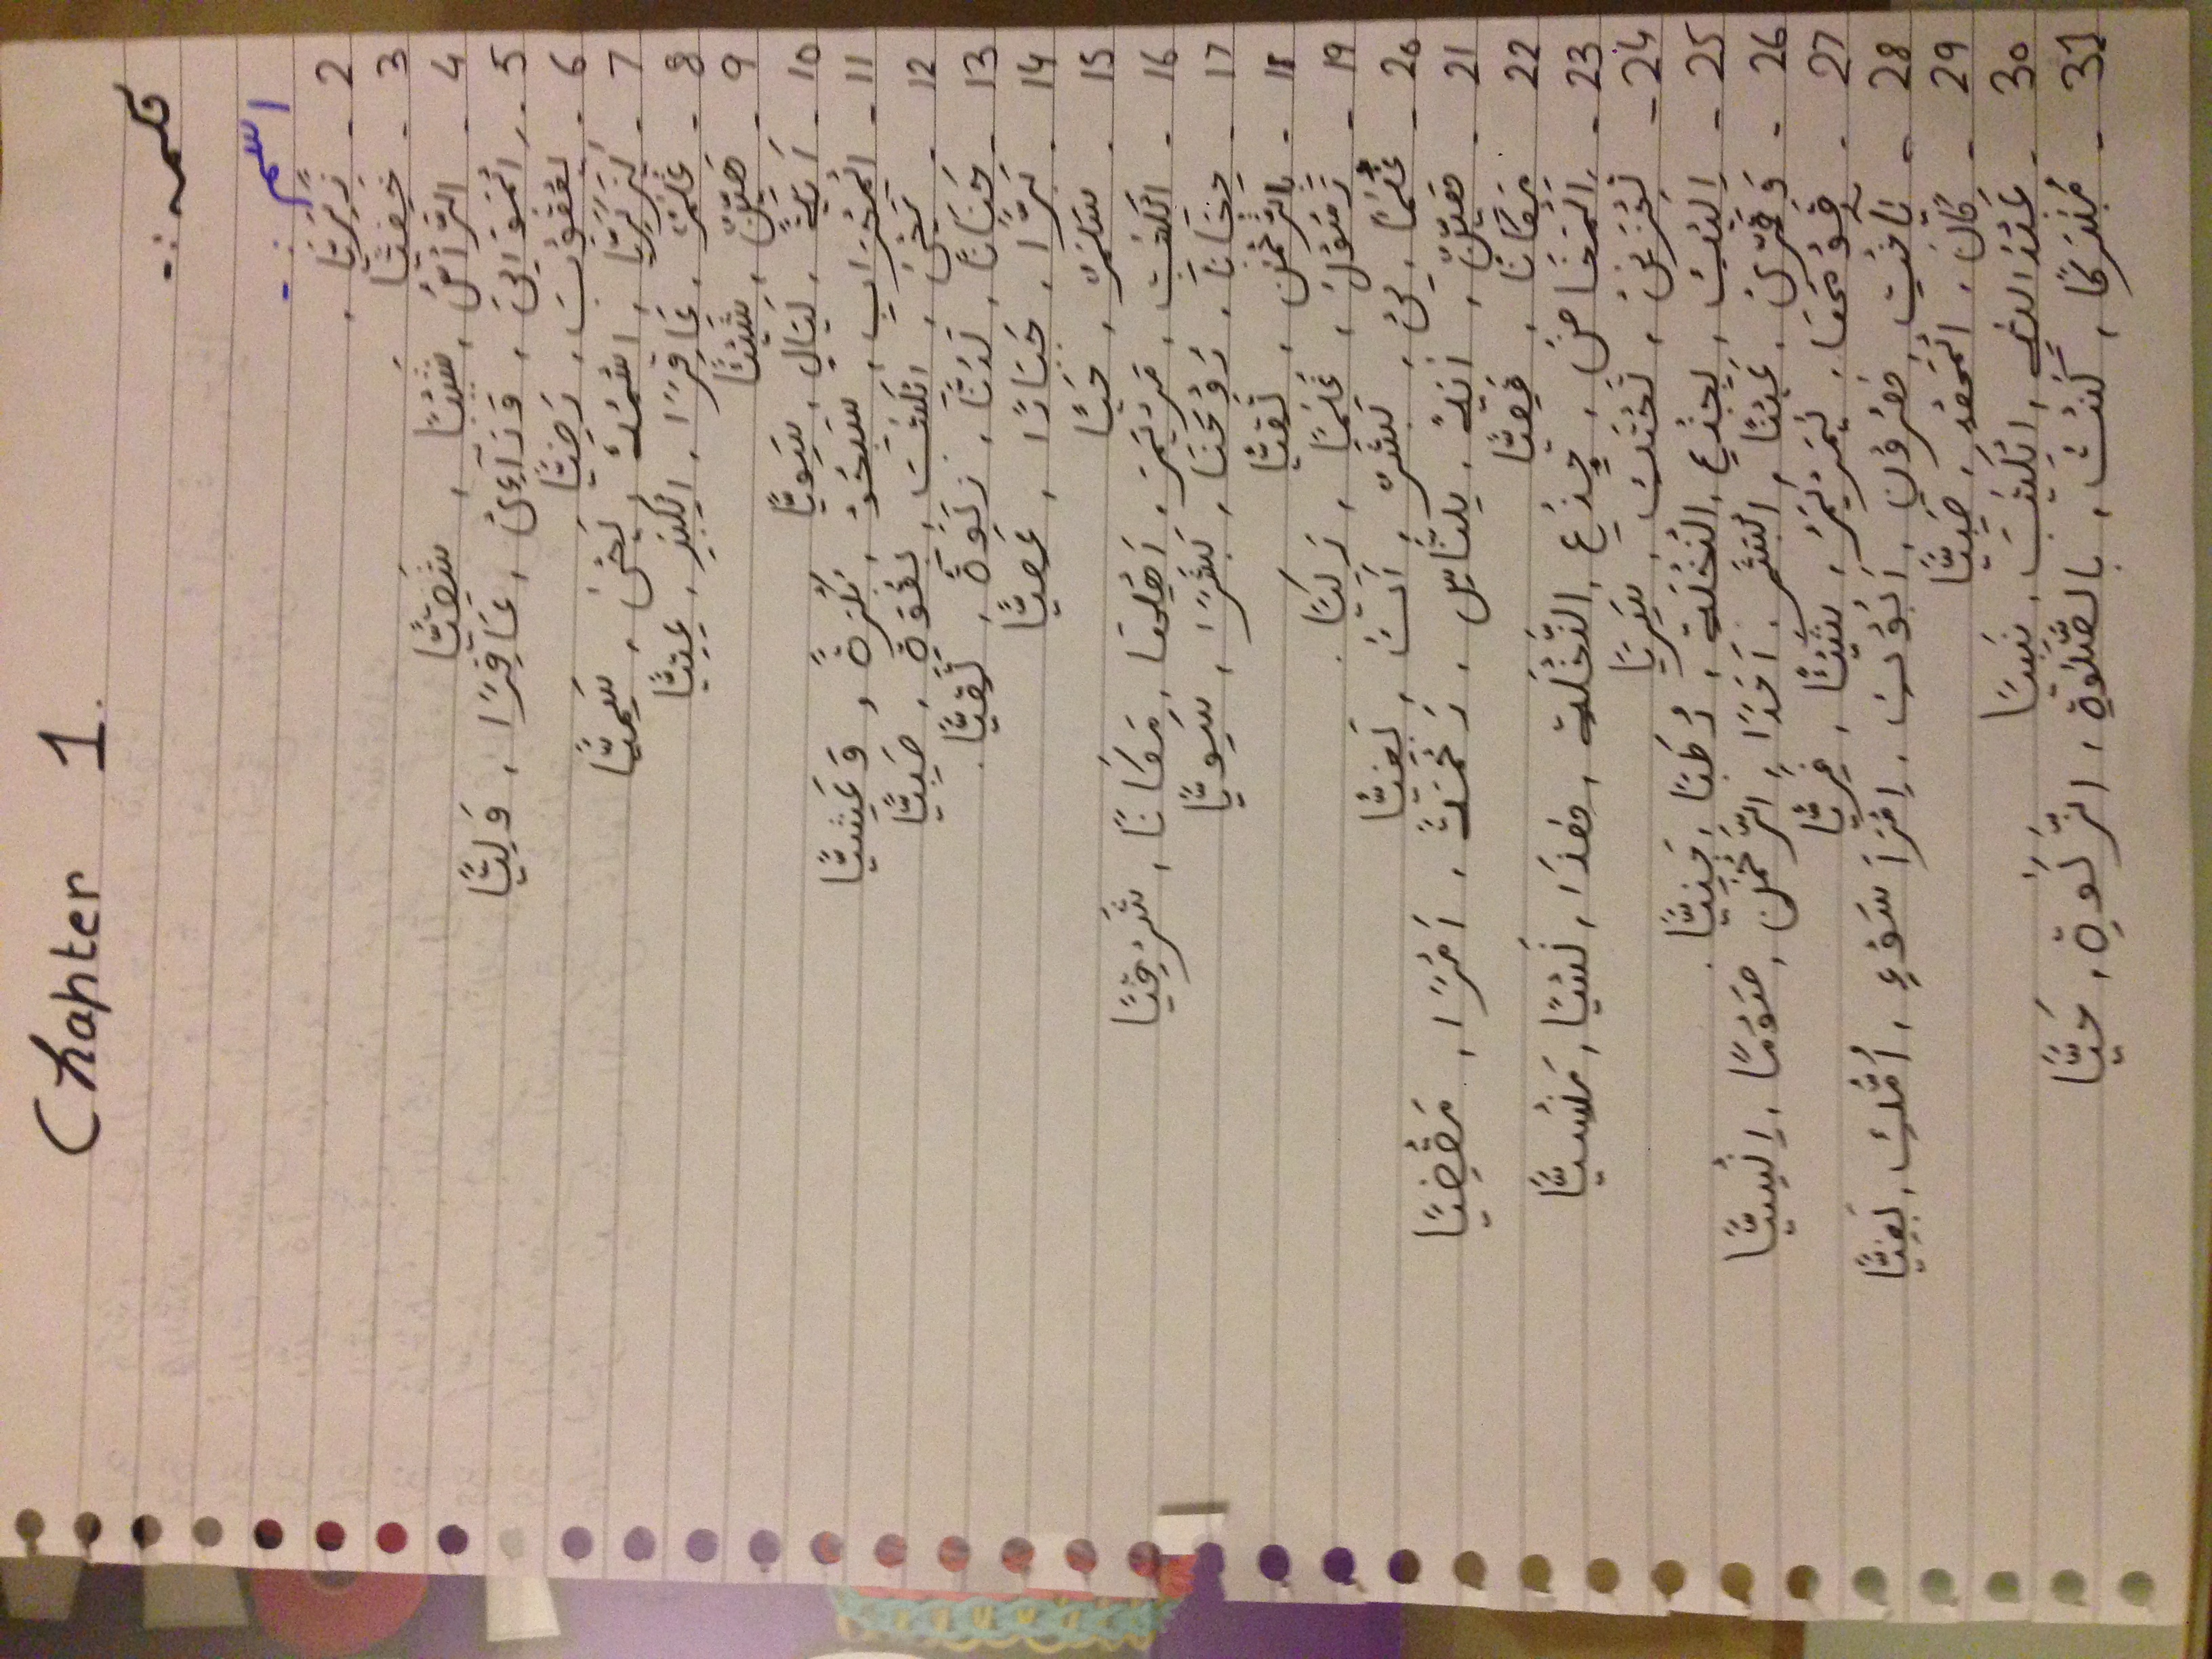 Chapter 1.
كلمه :-
اسم :-
2 - زَكَرِيَّا
3 - خَفِيًّا
4 - الرَّأْسُ , شَيْبًا , شَقِيًّا
5 - الْمَوَالِىَ , وَرَآءِىْ , عَاقِرًا , وَلِيًّا
6 - يَعْقُوْبَ , رَضِيًّا
7 - يٰزَكَرِيَّا , اسْمُهٗ يَحْىٰ , سَمِيًّا
8 - غُلٰمٌ , عَاقِرًا , الْكِبَرِ , عِتِيًّا
9 - هَيِّنٌ , شَيْئًا
10 - اٰيَةً , لَيَالٍ , سَوِيًّا
11 - الْمِحْرَابِ , سَبِّحُوْ , بُكْرَةً , وَعَشِيًّا
12 - يٰيَحْىٰ , الْكِتٰبَ , بِقُوَّةٍ , صَبِيًّا
13 - حَنَانًا , لَدُنَّا , زَكٰوةً , تَقِيًّا
14 - بَرًّا , جَبَّارًا , عَصِيًّا
15 - سَلٰمٌ , حَيًّا
16 - الْكِتٰبِ , مَرْيَمَ , اَهْلِهَا , مَكَانًا , شَرْقِيًّا
17 - حِجَابًا , رُوْحَنَا , بَشَرًا , سَوِيًّا
18 - بِالرَّحْمٰنِ , تَقِيًّا
19 - رَسُوْلُ , غُلٰمًا , زَكِيًّا
20 - غُلٰمٌ , لِىْ , بَشَرٌ , اَكُ , بَغِيًّا
21 - هَيِّنٌ , اٰيَةً , لِلنَّاسِ , رَحْمَةً , اَمْرًا , مَقْضِيًّا
22 - مَكَانًا , قَصِيًّا
23 - الْمَخَاضُ , جِذْعِ , النَّخْلَةِ , هٰذَا , نَسْيًا , مَنْسِيًّا
24 - تَحْزَنِىْ , تَحْتَكِ , سَرِيًّا
25 - اِلَيْكِ , بِجِذْعِ , النَّخْلَةِ , رُطَبًا , جَنِيًّا
26 - وَقَرِّىْ , عَيْنًا , الْبَشَرِ , اَحَدًا , الرَّحْمٰنِ , صَوْمًا , اِنْسِيًّا
27 - قَوْمَهَا , يٰمَرْيَمُ , شَيْئًا , فَرِيًّا
28 - يٰاُخْتَ , هٰرُوْنَ , اَبُوْكِ , امْرَاَ سَوْءٍ , اُمُّكِ , بَغِيًّا
29 - كَانَ , الْمَهْدِ , صَبِيًّا
30 - عَبْدُ اللّٰهِ , الْكِتٰبَ , نَبِيًّا
31 - مُبٰرَكًا , كُنْتُ , بِالصَّلٰوةِ , الزَّكٰوةِ , حَيًّا